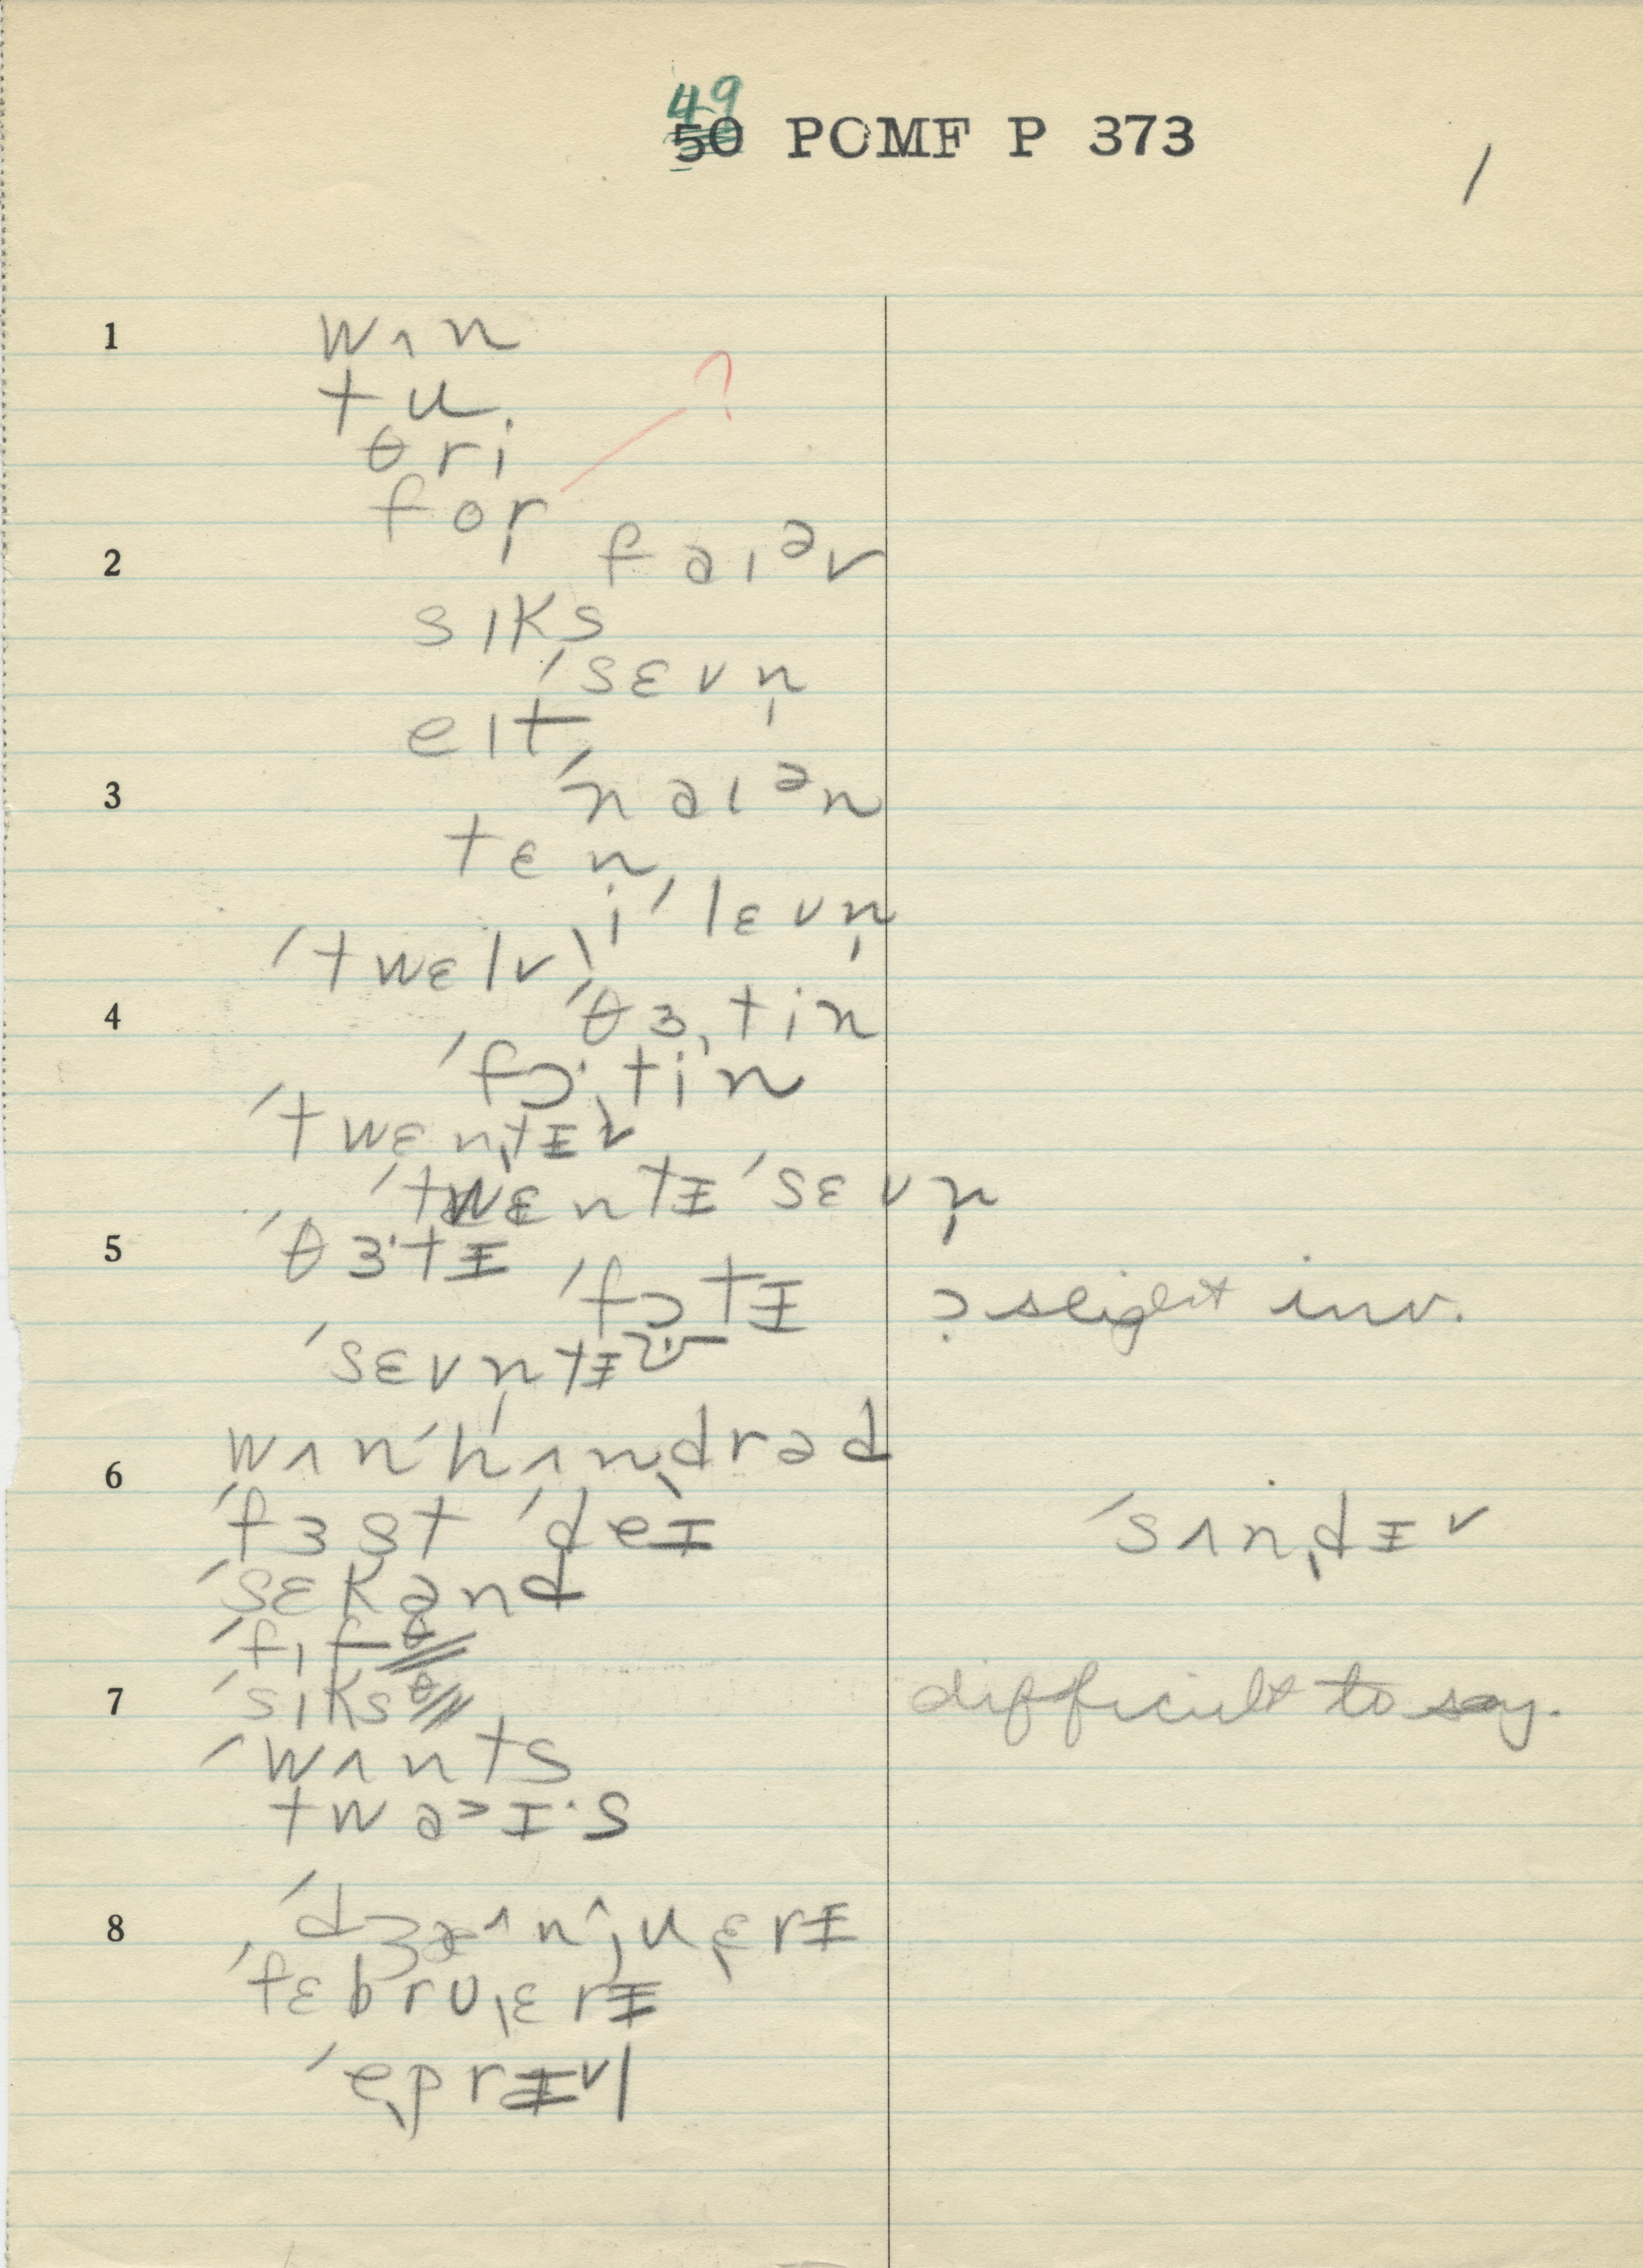 49
50 POMF P 373
1
1 wʌn
tu
θri
for ?
2 faɪᵊv
sɪks
ˈsɛvn̩
eɪt
3 ˈnaɪᵊn
tɛn
iˈlɛvn̩
ˈtwɛlv
4 ˈθɜˌtin
ˈfɔˌtin
ˈtwɛnˌtɪ˅
ˈtwɛntɪˈsɛvn̩
5 ˈθɜˑtɪ
ˈfɔtɪ ɔ slight inv.
ˈsɛvn̩tɪ
6 wʌnˈhʌnˌdrəd
ˈfɜst ˈdeɪ ˈsʌnˌdɪ˅
ˈsɛkənd
ˈfɪfθ
7 ˈsɪksθ difficult to say.
ˈwʌnts
twa˃ɪˑs
8 ˈdʒæ^nˌjuˌɛrɪ
ˈfɛbruˌɛrɪ
ˈeˌprɪ˅l